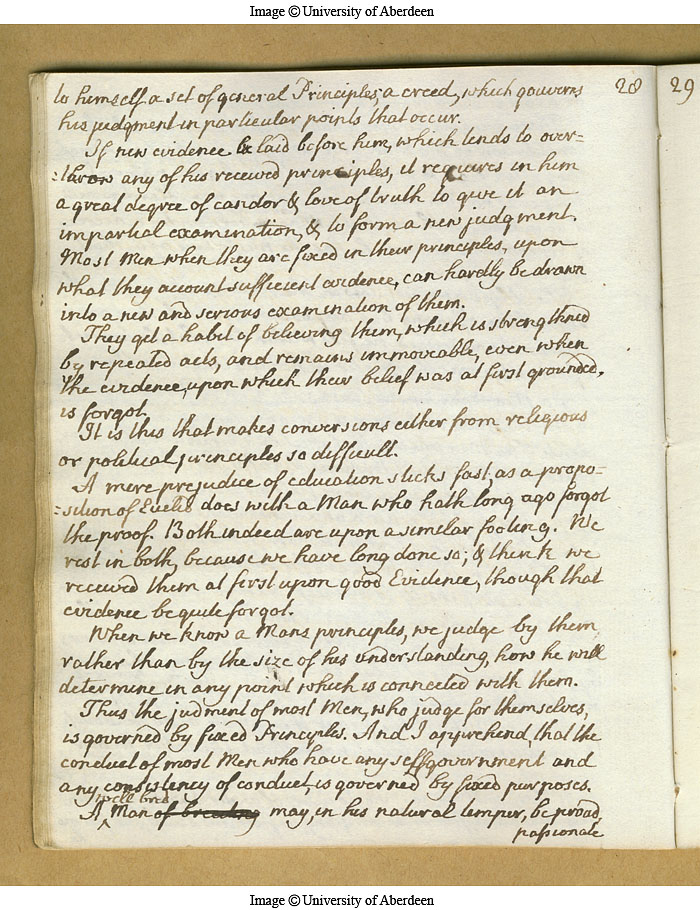 Image © University of Aberdeen
28
29
to himself a set of general Principles, a creed, which gouverns
his judgment in particular points that occur.
If new evidence be laid before him, which tends to over-
-throw any of his received principles, it requires in him
a great degree of candor & love of truth to give it an
impartial examination, & to form a new judgment.
Most Men when they are fixed in their principles, upon
what they account sufficient evidence, can hardly be drawn
into a new and serious examination of them.
They get a habit of believing them, which is strengthned
by repeated acts, and remains immoveable, even when
the evidence, upon which their belief was at first grounded,
is forgot.
It is this that makes conversions either from religious
or political principles so difficult.
A mere prejudice of education sticks fast, as a propo-
-sition of Euclid does with a Man who hath long ago forgot
the proof. Both indeed are upon a similar footing. We
rest in both, because we have long done so; & think we
received them at first upon good Evidence, though that
evidence be quite forgot.
When we know a Mans principles, we judge by them,
rather than by the size of his understanding, how he will
determine in any point which is connected with them.
Thus the judment of most Men, who judge for themselves,
is governed by fixed Principles. And I apprehend, that the
conduct of most Men who have any self government and
any consistency of conduct, is governed by fixed purposes.
well bred
A ‸ Man of breeding may, in his natural temper, be proud,
passionate
Image © University of Aberdeen